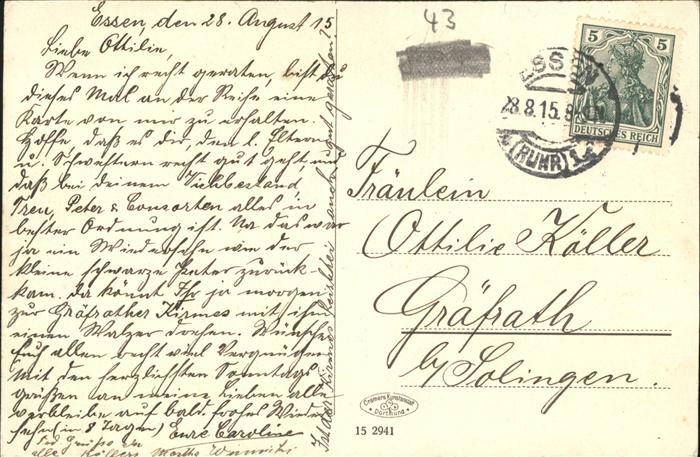 Essen, den 28. August 15
Liebe Ottilie,
Wenn ich recht geraten, bist du
dieses Mal an der Reihe eine
Karte von mir zu erhalten.
Hoffe, daß es dir, den l. Eltern
u. Schwestern recht gut geht, und
daß bei deinem Viehbestand
Treu, Peter & Consorten alles in
bester Ordnung ist. Na das war
ja ein Wiedersehn wie der
kleine schwarze Peter zurück
kam. da könnt Ihr ja morgen
zur Gräfrather Kirmes mit ihm
einen Walzer drehen. Wünsche
Euch allen recht viel Vergnügen
Mit den herzlichsten Sonntags
grüßen an meine Lieben alle
verbleibe auf bald. frohes Wieder
sehn (in 8 Tagen) Eure Caroline
Grüße an
alle Köllers Martha
Ist der Kirmes auch gut geraten?
43
5 5
DEUTSCHES REICH
ESSEN
28.8.15.8-9N
(RUHR) 1
Fräulein
Ottilie Köller
Gräfrath
b/ Solingen.
Cramers Kunstanstalt
Dortmund
15 2941